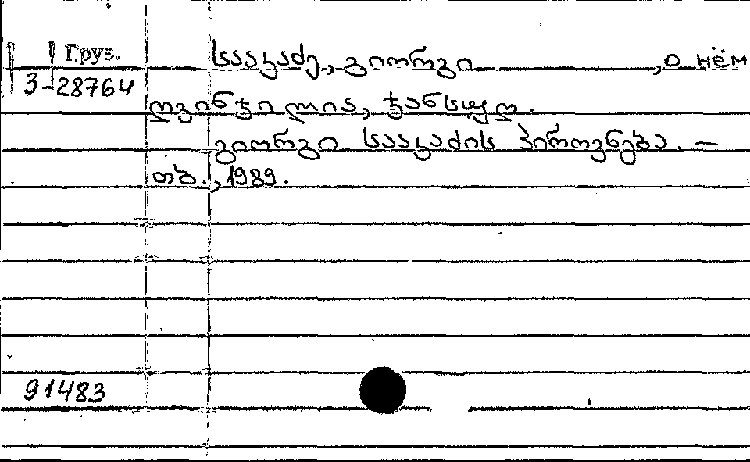 Груз. სააკაძე, გიორგი , о нём
3-28764
ღვინჯილია, ჯანსუღ.
გიორგი სააკაძის პიროვნება. –
თბ., 1989.
91483